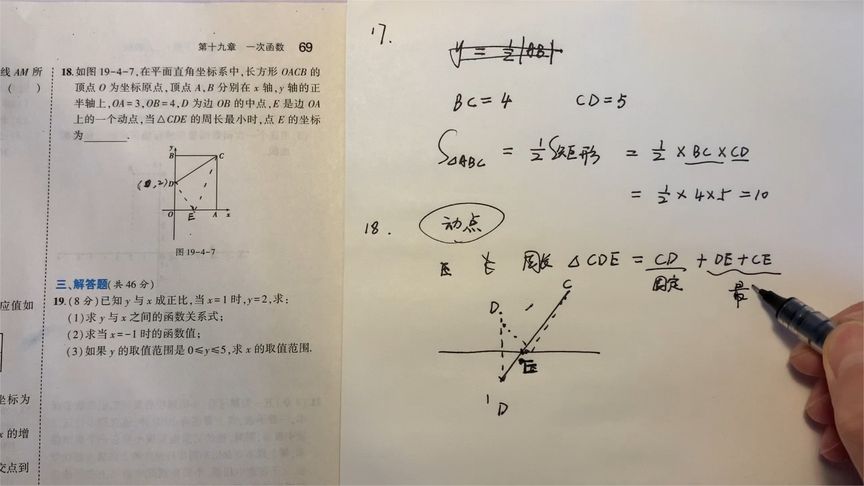 第十九章 一次函数 69
线 AM 所
( )
18.如图 19-4-7,在平面直角坐标系中,长方形 OACB 的
顶点 O 为坐标原点,顶点 A,B 分别在 x 轴,y 轴的正
半轴上,OA=3,OB=4,D 为边 OB 的中点,E 是边 OA
上的一个动点,当△CDE 的周长最小时,点 E 的坐标
为________.
y
B C
(0,2) D
O E A x
图 19-4-7
三、解答题(共 46 分)
19.(8 分)已知 y 与 x 成正比,当 x=1 时,y=2,求:
(1)求 y 与 x 之间的函数关系式;
(2)求当 x=-1 时的函数值;
(3)如果 y 的取值范围是 0≤y≤5,求 x 的取值范围.
应值如
坐标为
x 的增
交点到
17.
y = 1/2|AB|
BC=4 CD=5
S△ABC = 1/2 S矩形 = 1/2 × BC × CD
= 1/2 × 4 × 5 = 10
18. 动点
周长 △CDE = CD + DE + CE
固定 最
C
D
E
D